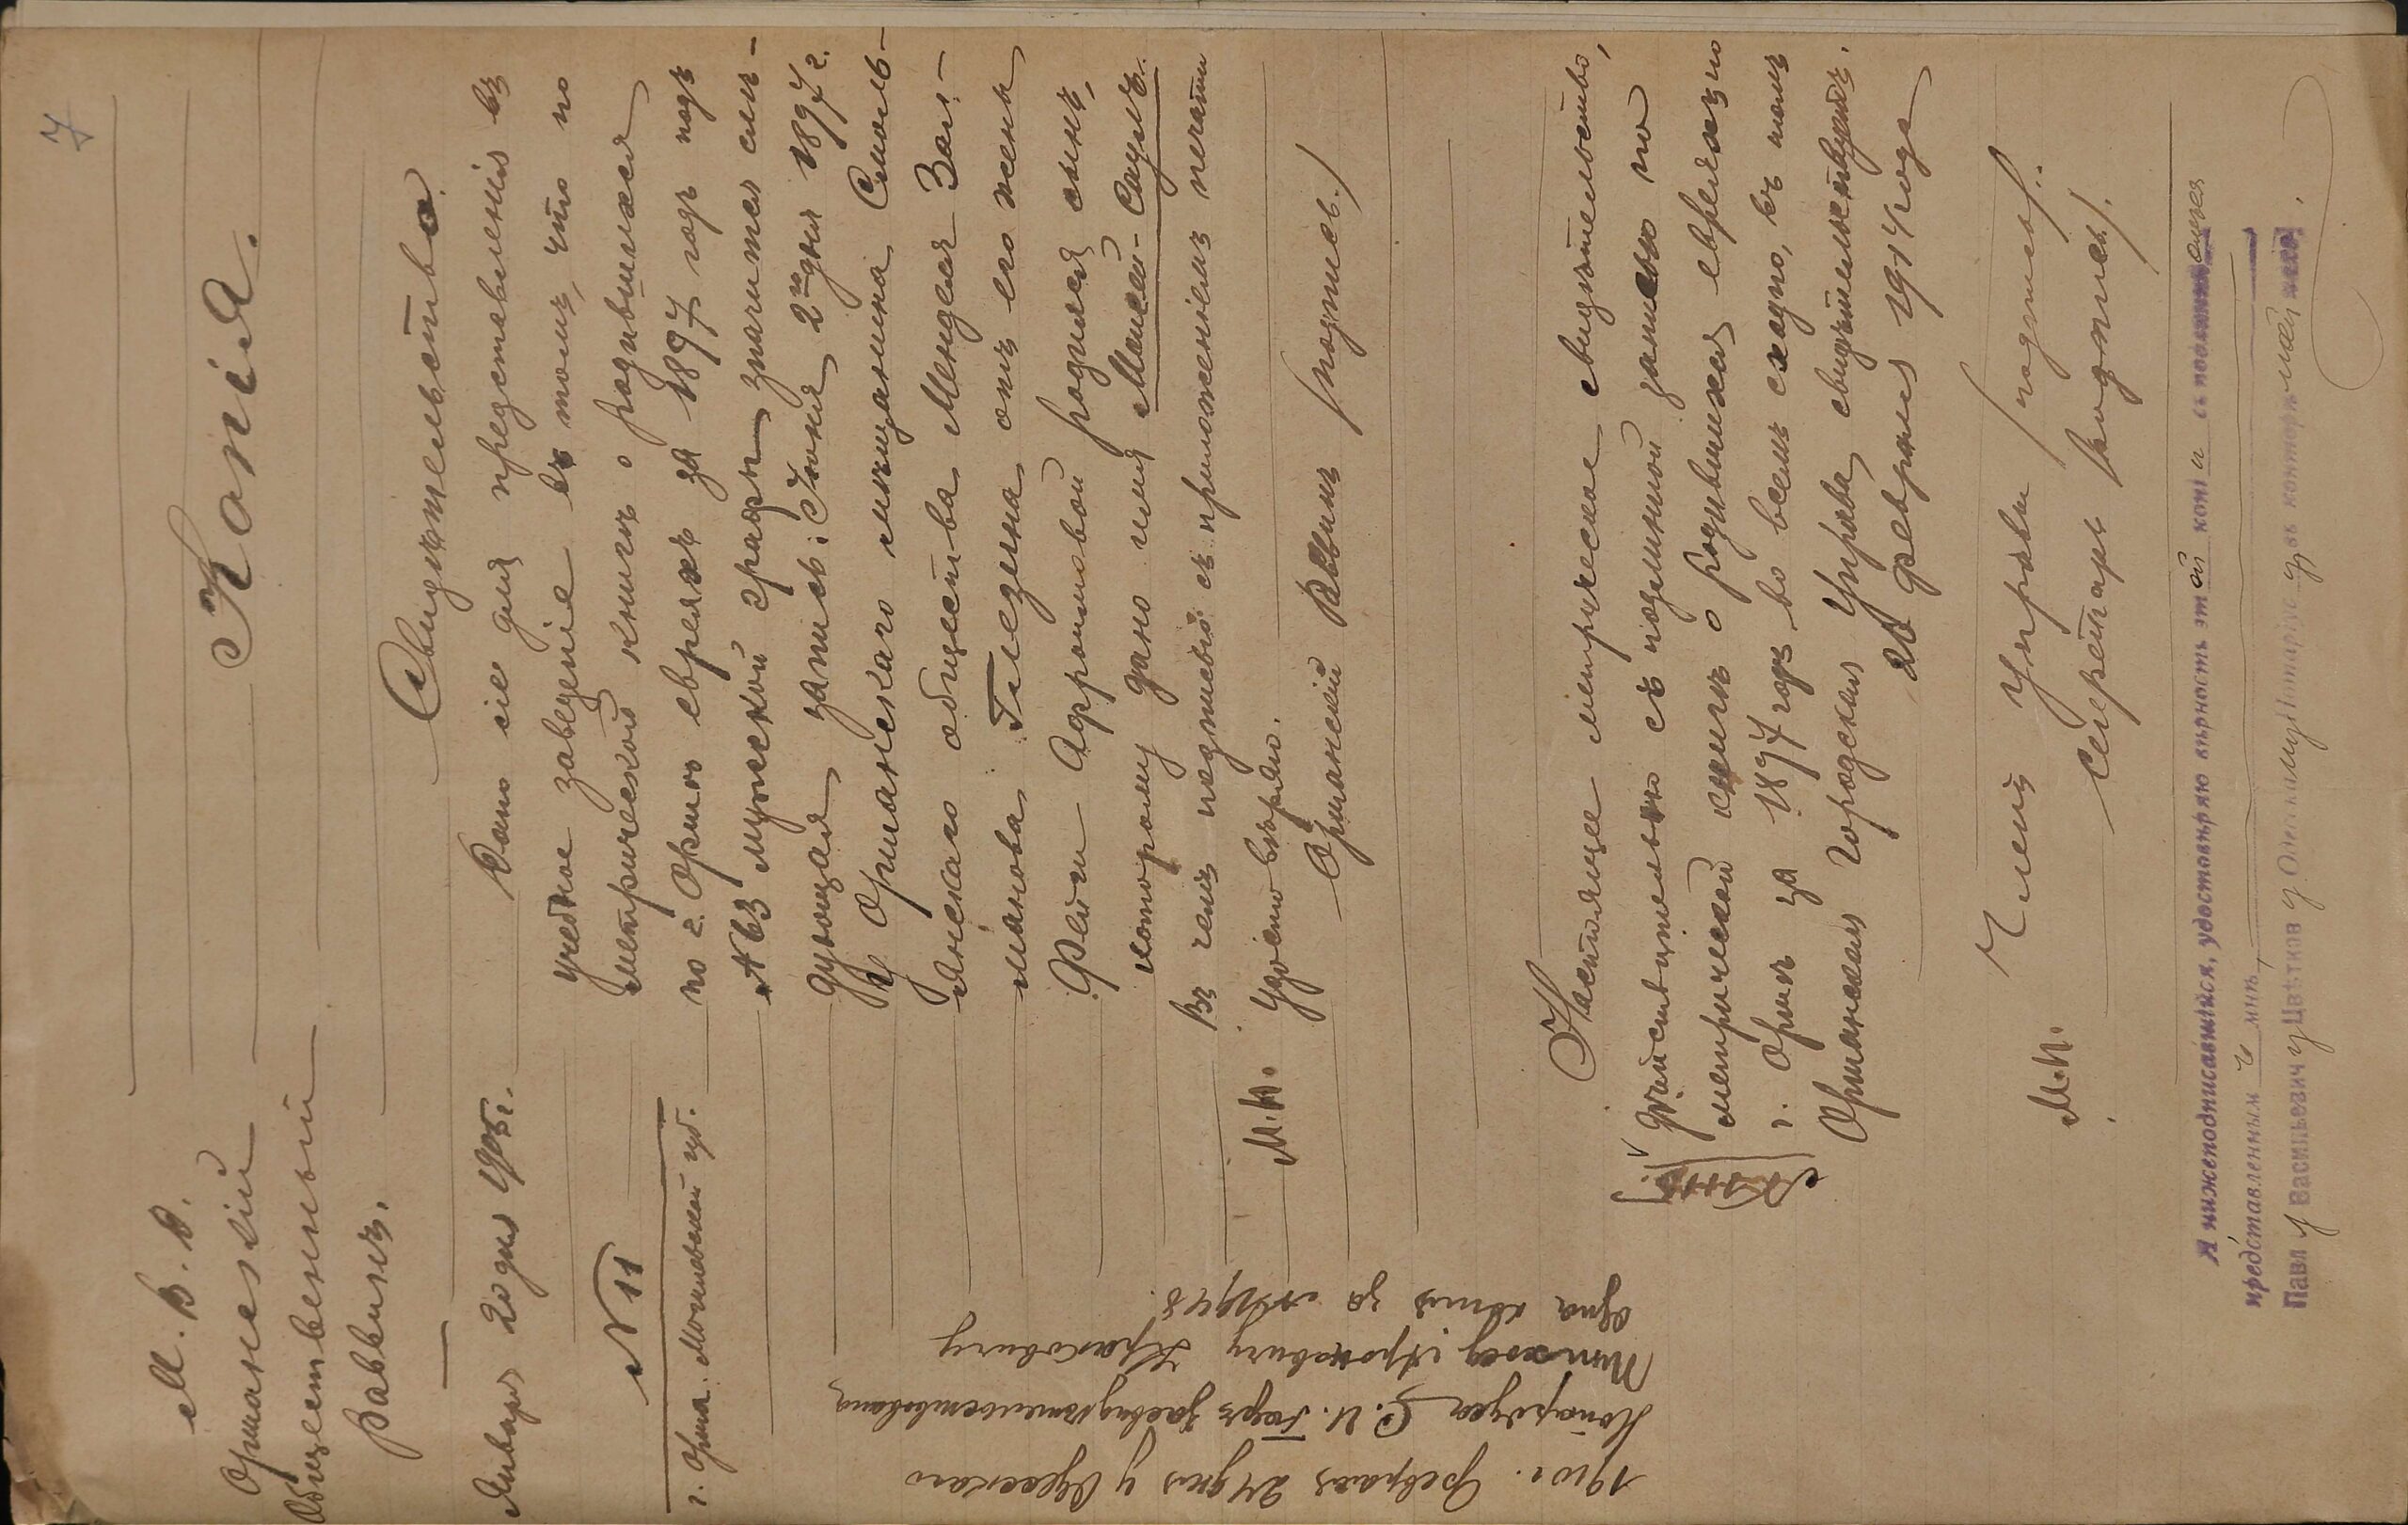 7
Копія.
М. В. Д.
Оршанскій
Общественный
Раввинъ.
Января 20 дня 1905 г.
№ 11
г. Орша. Могилевской губ.
Свидѣтельство.
Дано сіе для представленія въ
учебное заведеніе въ томъ, что по
метрической книгѣ о родившихся
по г. Оршѣ евреяхъ за 1897 годъ подъ
№ 63 мужской графы значится слѣ-
дующая запись: Іюня 2го дня 1897 г.
у Оршанскаго мѣщанина Смоль-
янскаго общества Менделя Зал-
манова Глезина отъ его жены
Фейги родился сынъ,
которому дано имя Моисей-Саулъ.
Въ чемъ подписью съ приложеніемъ печати
М.П. удостовѣряю.
Оршанскій Раввинъ (подпись.)
Настоящее метрическое свидѣтельство,
дѣйствительно съ подлинной записью по
метрической книгѣ о родившихся евреяхъ по
г. Оршѣ за 1897 годъ во всемъ сходно, въ томъ
Оршанская Городская Управа свидѣтельствуетъ.
Февраля 1914 года
М.П. Членъ Управы (подпись).
Секретарь (подпись).
Я нижеподписавшійся, удостовѣряю вѣрность этой копіи съ подлинникомъ
представленнымъ мнѣ,
Павлу Васильевичу Цвѣткову Нотаріусу, въ конторѣ моей
1910 г. Февраля 24 дня у Одесскаго
Нотаріуса С. И. Гурѣ засвидѣтельствована
Одна копія за №